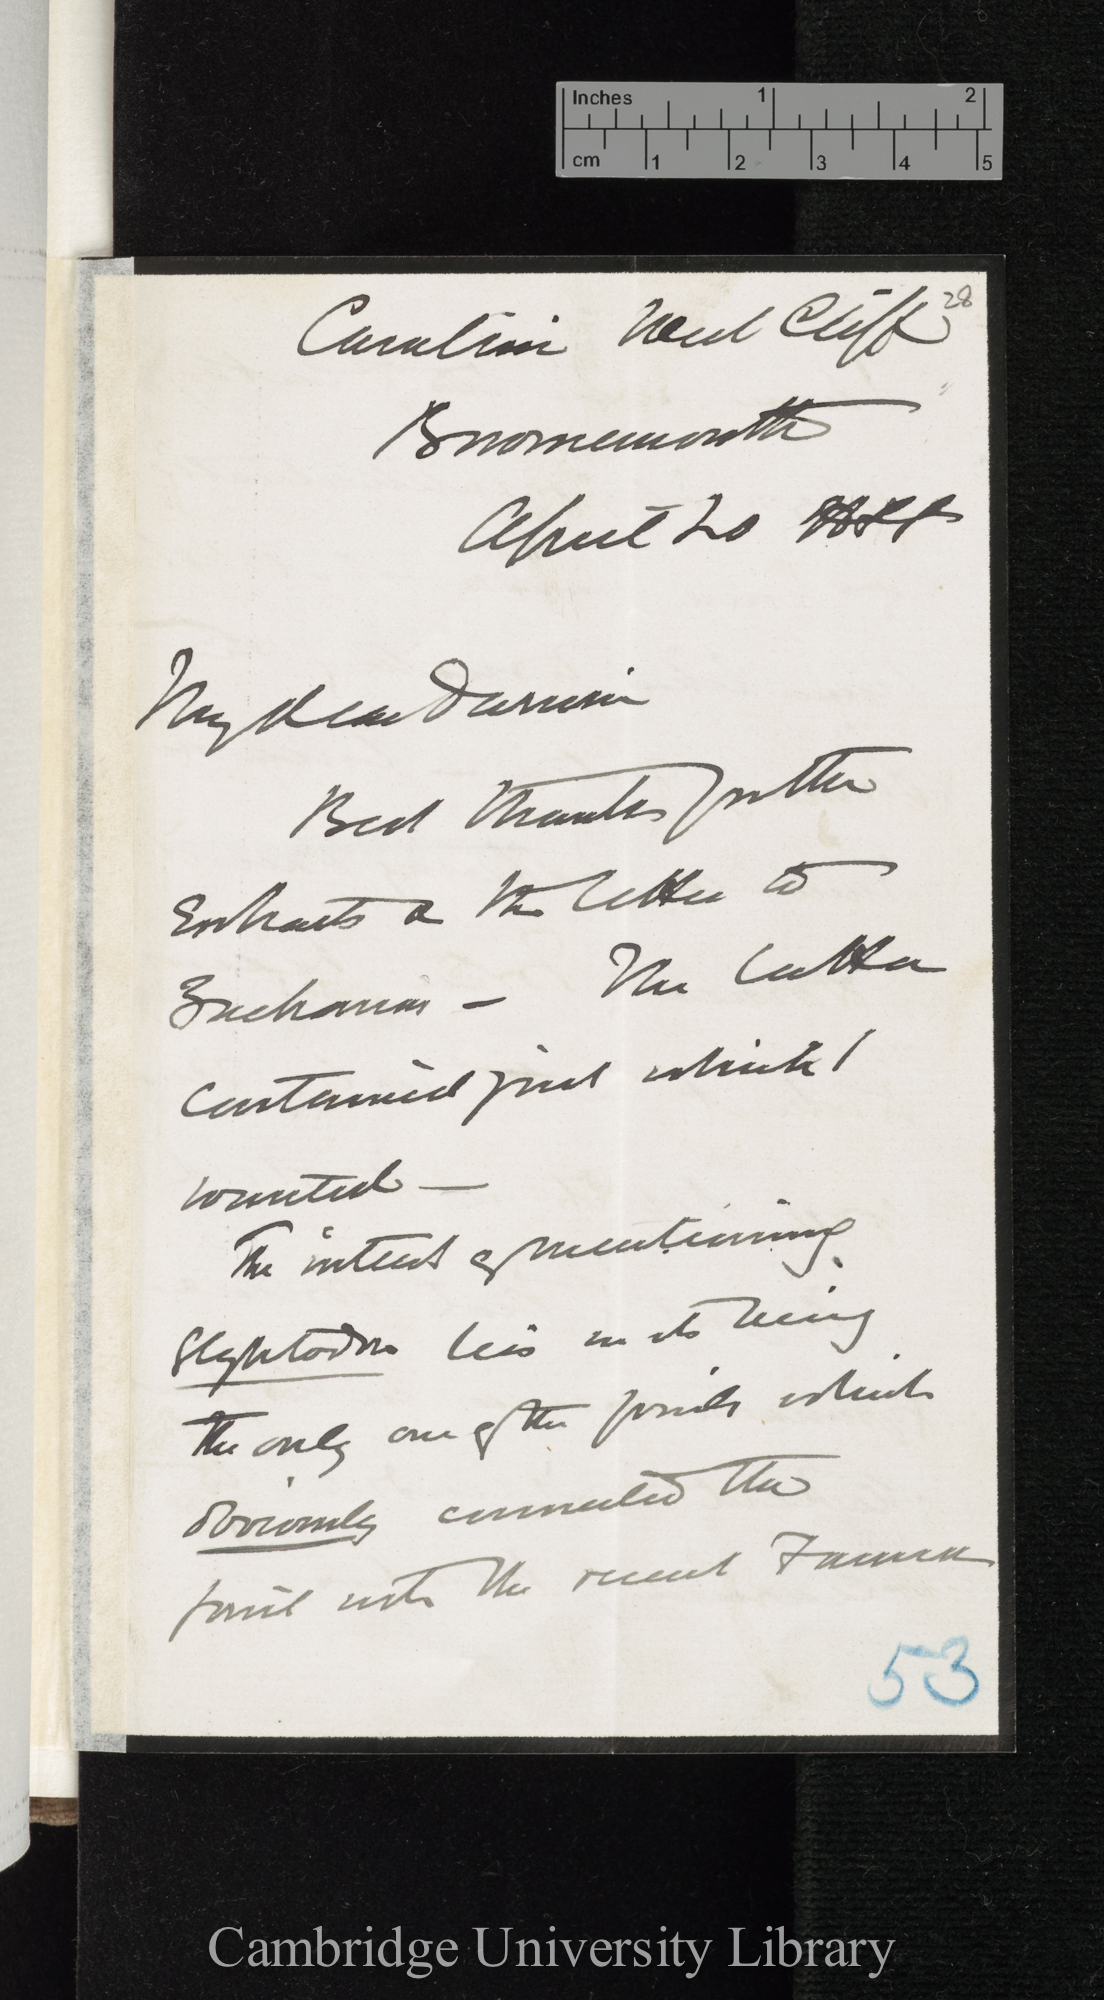 Inches 1 2
cm 1 2 3 4 5
28
West Cliff
Bournemouth
April 20
My dear Darwin
Best thanks for the
Extracts & the letter to
Buchanan – The latter
contained just which I
wanted –
The interest of mentioning
Glyptodon lies in its being
the only one of the fossils which
obviously connected the
fossil with the recent Fauna
53
Cambridge University Library